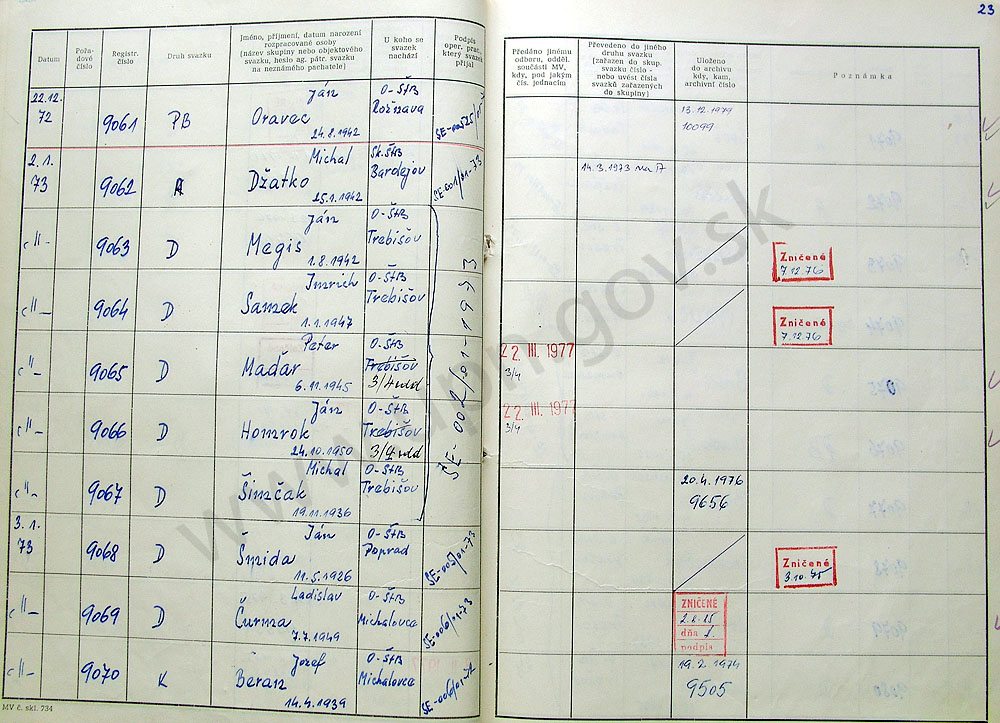 23
Datum
Pořa-
dové
číslo
Registr.
číslo
Druh svazku
Jméno, příjmení, datum narození
rozpracované osoby
(název skupiny nebo objektového
svazku, heslo ag. pátr. svazku
na neznámého pachatele)
U koho se
svazek
nachází
Podpis
oper. prac.,
který svazek
přijal
Předáno jinému
odboru, odděl.
součásti MV,
kdy, pod jakým
čís. jednacím
Převedeno do jiného
druhu svazku
(zařazen do skup.
svazku číslo -
nebo uvést čísla
svazků zařazených
do skupiny)
Uloženo
do archivu
kdy, kam,
archivní číslo
Poznámka
22.12.
72
9061
PB
Ján
Oravec
24.8.1942
O-ŠtB
Rožňava
13.12.1979
10099
2.1.
73
9062
A
Michal
Džatko
25.1.1942
Sk.ŠtB
Bardejov
SE-001/01-73
14.3.1973 na D
-"-
9063
D
Ján
Megis
1.8.1942
O-ŠtB
Trebišov
SE-002/01-1973
Zničené
7.12.76
-"-
9064
D
Imrich
Samek
1.1.1947
O-ŠtB
Trebišov
Zničené
7.12.76
-"-
9065
D
Peter
Maďar
6.11.1945
O-ŠtB
Trebišov
3/4 odd
22. III. 1977
3/4
-"-
9066
D
Ján
Homrok
24.10.1950
O-ŠtB
Trebišov
3/4 odd
22. III. 1977
3/4
-"-
9067
D
Michal
Šimčak
19.11.1936
O-ŠtB
Trebišov
20.4.1976
9656
3.1.
73
9068
D
Ján
Šmida
11.5.1926
O-ŠtB
Poprad
Zničené
3.10.75
-"-
9069
D
Ladislav
Čurma
7.7.1949
O-ŠtB
Michalovce
SE-006/01-73
ZNIČENÉ
dňa
podpis
-"-
9070
K
Jozef
Beran
14.4.1939
O-ŠtB
Michalovce
19.2.1974
9505
MV č. skl. 734
www.upn.gov.sk